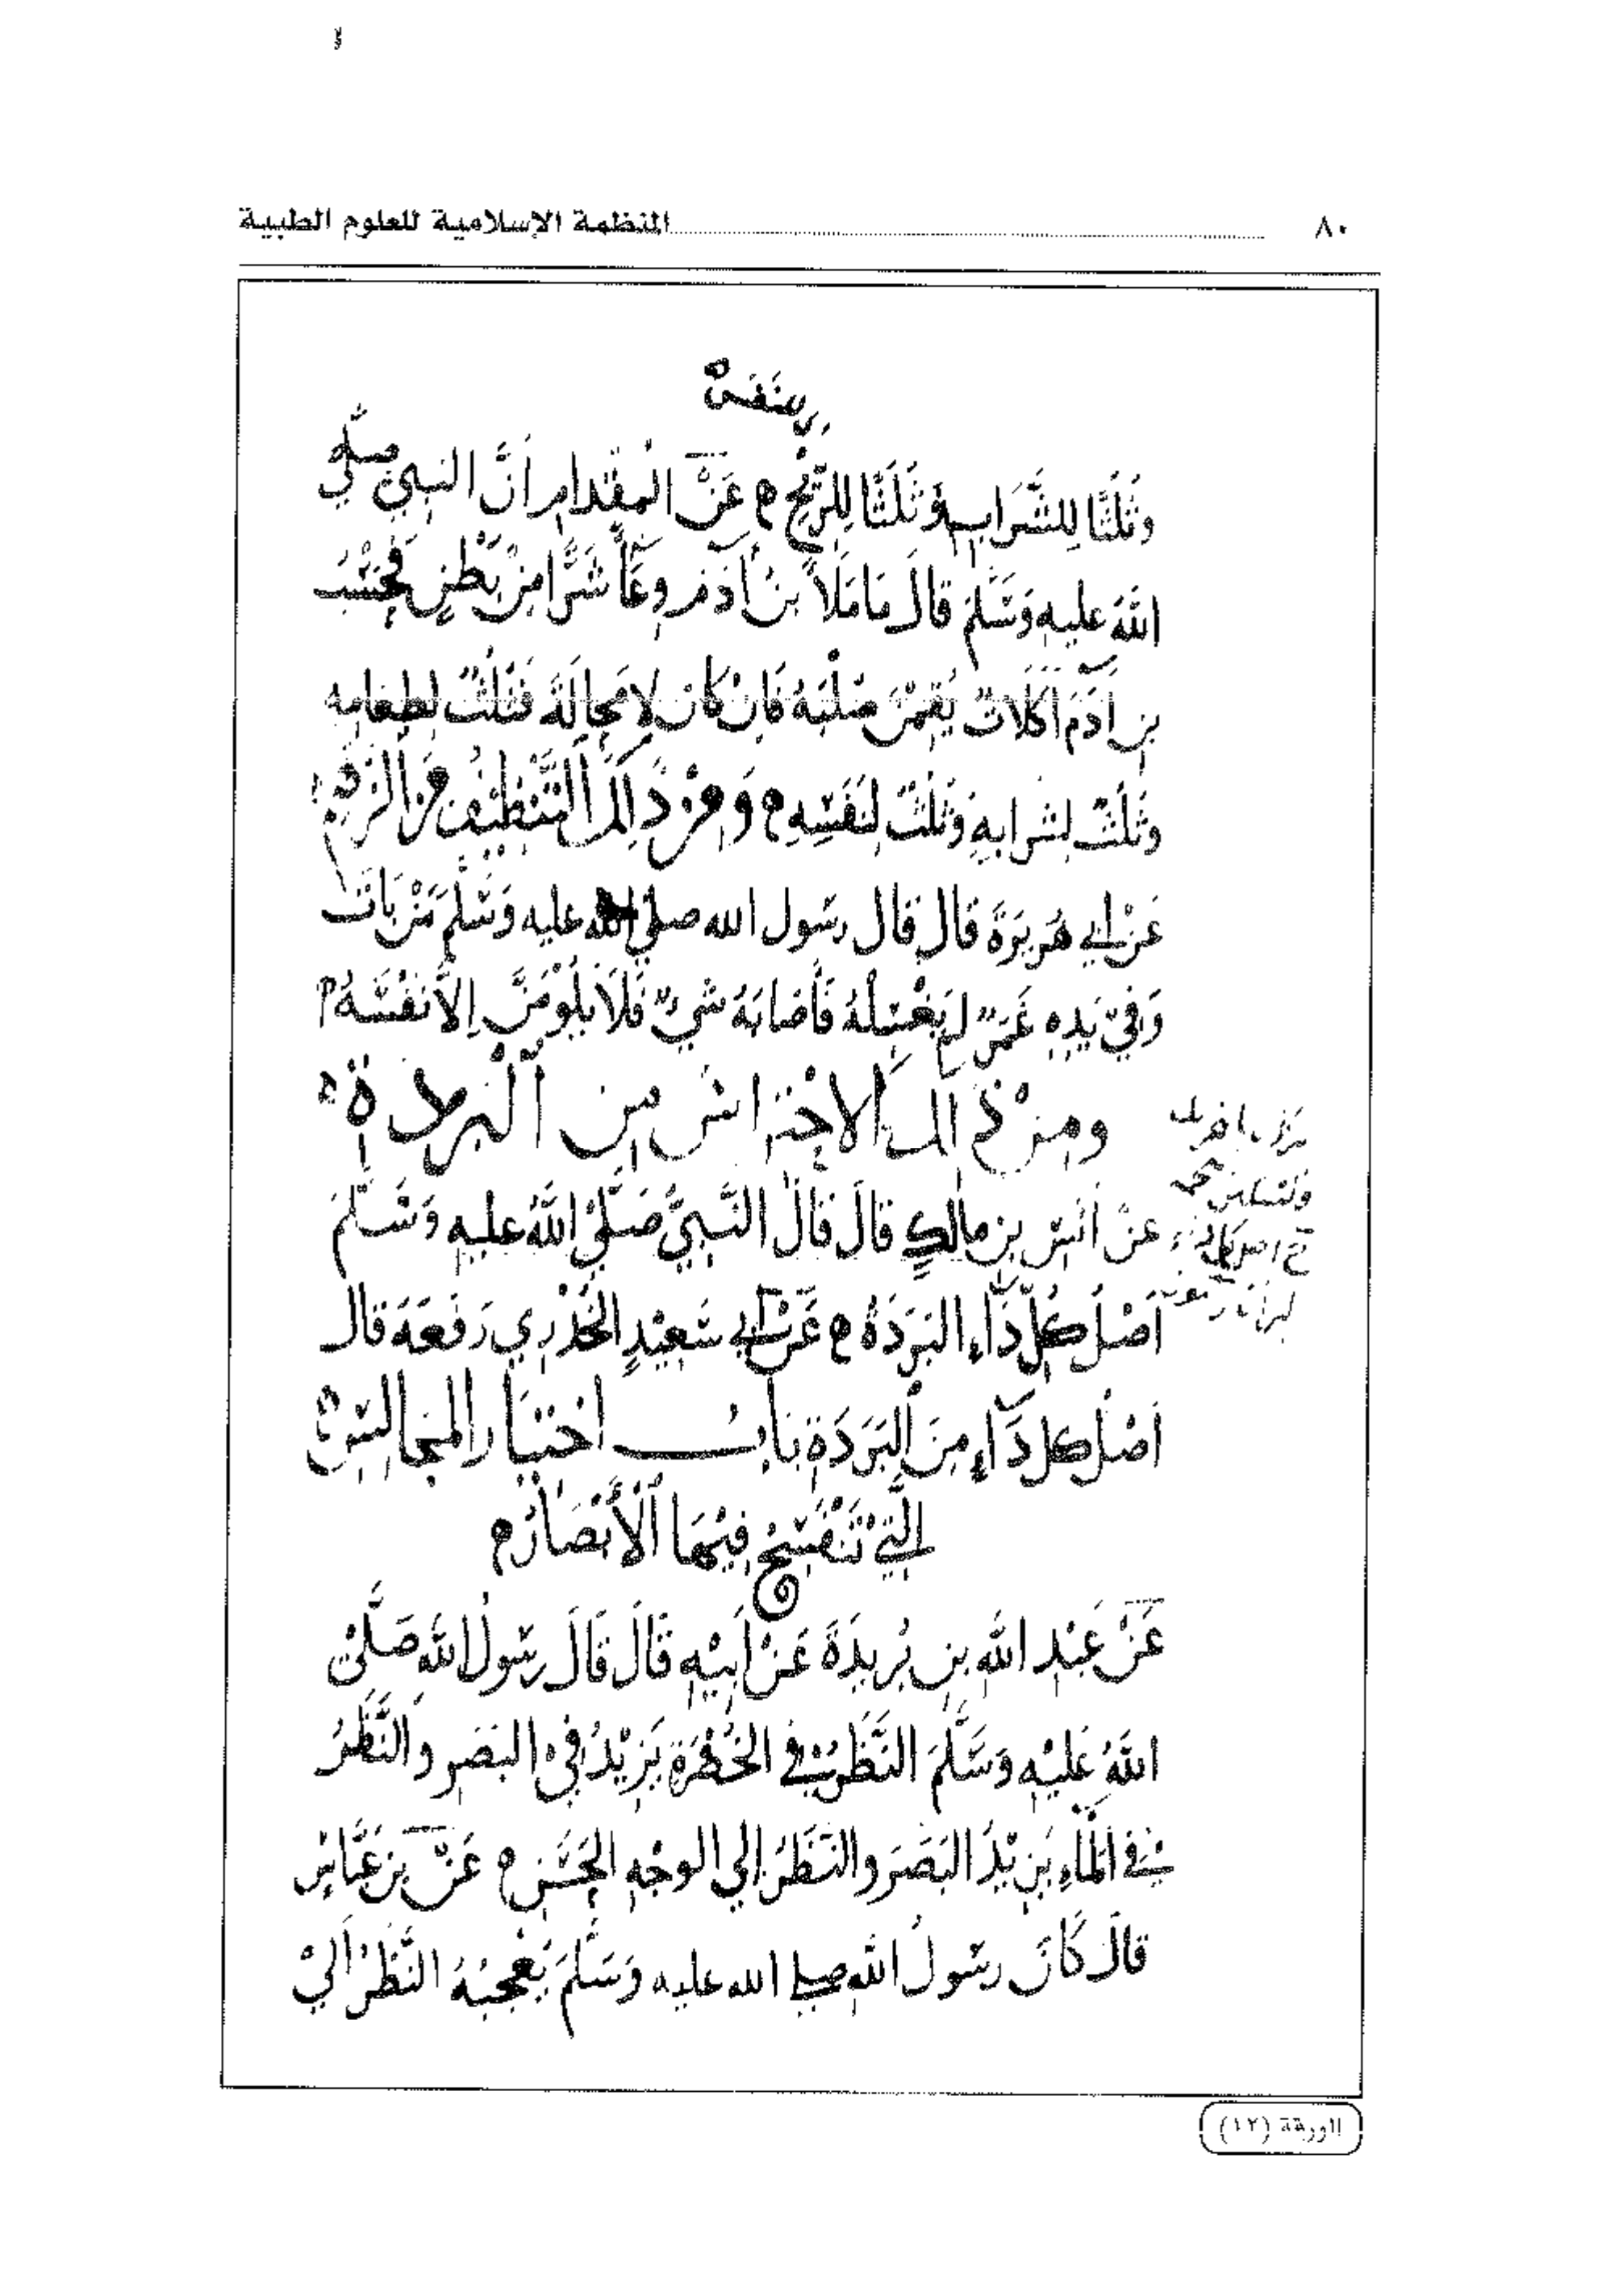 ٨٠ المنظمة الإسلامية للعلوم الطبية
للنفس
وثلثا للشراب وثلثا للريح م عن المقدام أن النبي صلى
الله عليه وسلم قال ما ملأ بن آدم وعآ شرا من بطن فحسب
بن آدم أكلات يقمن صلبه فان كان لا محالة فثلث لطعامه
وثلث لشرابه وثلث لنفسه م ومن ذلك التنظيف من الزفر
عن ابي هريرة قال قال رسول الله صلى الله عليه وسلم من بات
وفي يده غمر لم يغسله فأصابه شيء فلا يلومن إلا نفسه م
ومن ذلك الاحتراس من البردة
عن أنس بن مالك قال قال النبي صلى الله عليه وسلم
أصل كل داء البردة م عن أبي سعيد الخدري رفعه قال
أصل كل دآء من البردة باب اختيار المجالس
التي تنفسح فيها الأبصار م
عن عبد الله بن بريدة عن أبيه قال قال رسول الله صلى
الله عليه وسلم النظر في الخضرة يزيد في البصر والنظر
في الماء يزيد البصر والنظر إلي الوجه الحسن م عن بن عباس
قال كان رسول الله صلى الله عليه وسلم يعجبه النظر الي
الورقة (١٢)